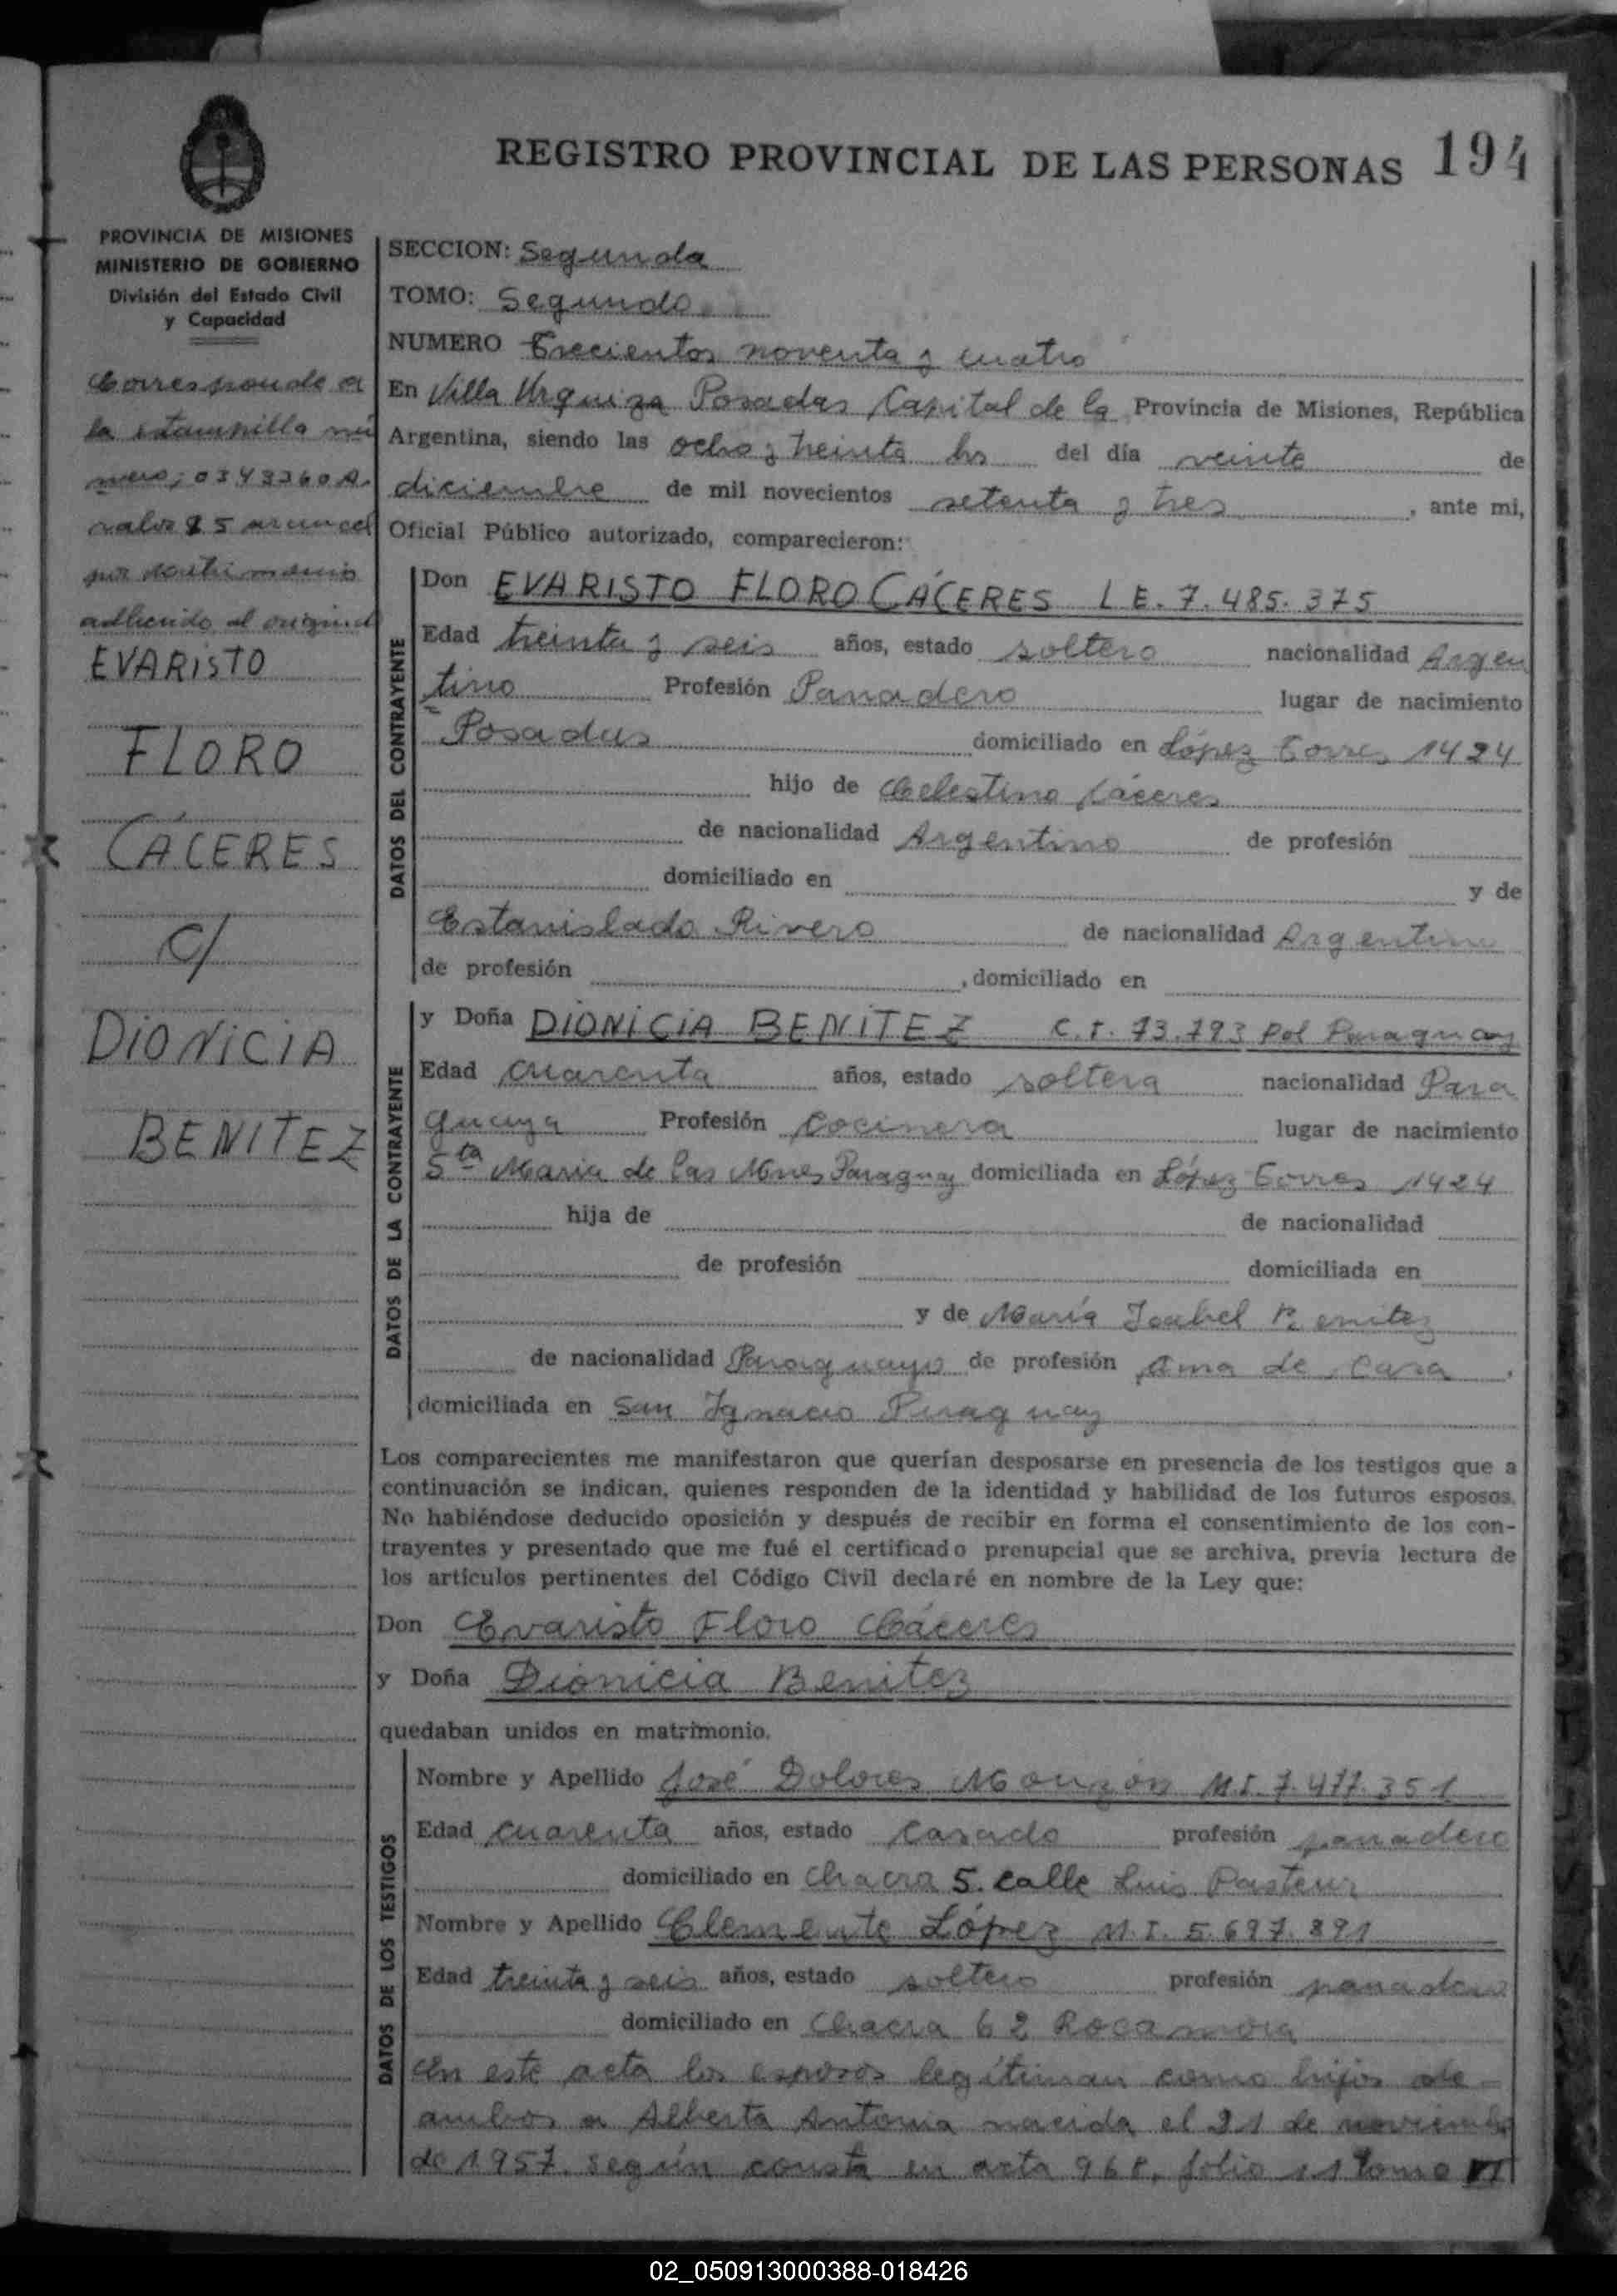 REGISTRO PROVINCIAL DE LAS PERSONAS 194
PROVINCIA DE MISIONES
MINISTERIO DE GOBIERNO
División del Estado Civil
y Capacidad
Corresponde a
la estampilla nú
mero; 0343360 A.
valor $5 arancel
por matrimonio
adherido al original
EVARISTO
FLORO
CÁCERES
c/
DIONICIA
BENITEZ
SECCION: Segunda
TOMO: Segundo
NUMERO Trecientos noventa y cuatro
En Villa Urquiza Posadas Capital de la Provincia de Misiones, República
Argentina, siendo las ocho y treinta hs del día veinte de
diciembre de mil novecientos setenta y tres, ante mi,
Oficial Público autorizado, comparecieron:
DATOS DEL CONTRAYENTE
Don EVARISTO FLORO CÁCERES L E. 7.485.375
Edad treinta y seis años, estado soltero nacionalidad Argen
tino Profesión Panadero lugar de nacimiento
Posadas domiciliado en López Torres 1424
hijo de Celestino Cáceres
de nacionalidad Argentino de profesión
domiciliado en y de
Estanislada Rivero de nacionalidad Argentina
de profesión , domiciliado en
DATOS DE LA CONTRAYENTE
y Doña DIONICIA BENITEZ C.I. 73.793 Pol Paraguay
Edad cuarenta años, estado soltera nacionalidad Para
guaya Profesión Cocinera lugar de nacimiento
Sta Maria de las Mnes Paraguay domiciliada en López Torres 1424
hija de de nacionalidad
de profesión domiciliada en
y de María Isabel Benitez
de nacionalidad Paraguaya de profesión ama de casa,
domiciliada en San Ignacio Paraguay
Los comparecientes me manifestaron que querían desposarse en presencia de los testigos que a
continuación se indican, quienes responden de la identidad y habilidad de los futuros esposos.
No habiéndose deducido oposición y después de recibir en forma el consentimiento de los con-
trayentes y presentado que me fué el certificado prenupcial que se archiva, previa lectura de
los artículos pertinentes del Código Civil declaré en nombre de la Ley que:
Don Evaristo Floro Cáceres
y Doña Dionicia Benitez
quedaban unidos en matrimonio.
DATOS DE LOS TESTIGOS
Nombre y Apellido José Dolores Monzón M.I. 7.477.351
Edad cuarenta años, estado Casado profesión panadero
domiciliado en Chacra 5. calle Luis Pasteur
Nombre y Apellido Clemente López M.I. 5.697.891
Edad treinta y seis años, estado soltero profesión panadero
domiciliado en Chacra 62 Rocamora
En este acta los esposos legítiman como hijos de
ambos a Alberta Antonia nacida el 21 de noviembre
de 1957. según consta en acta 968, folio 11 Tomo VI
02_050913000388-018426